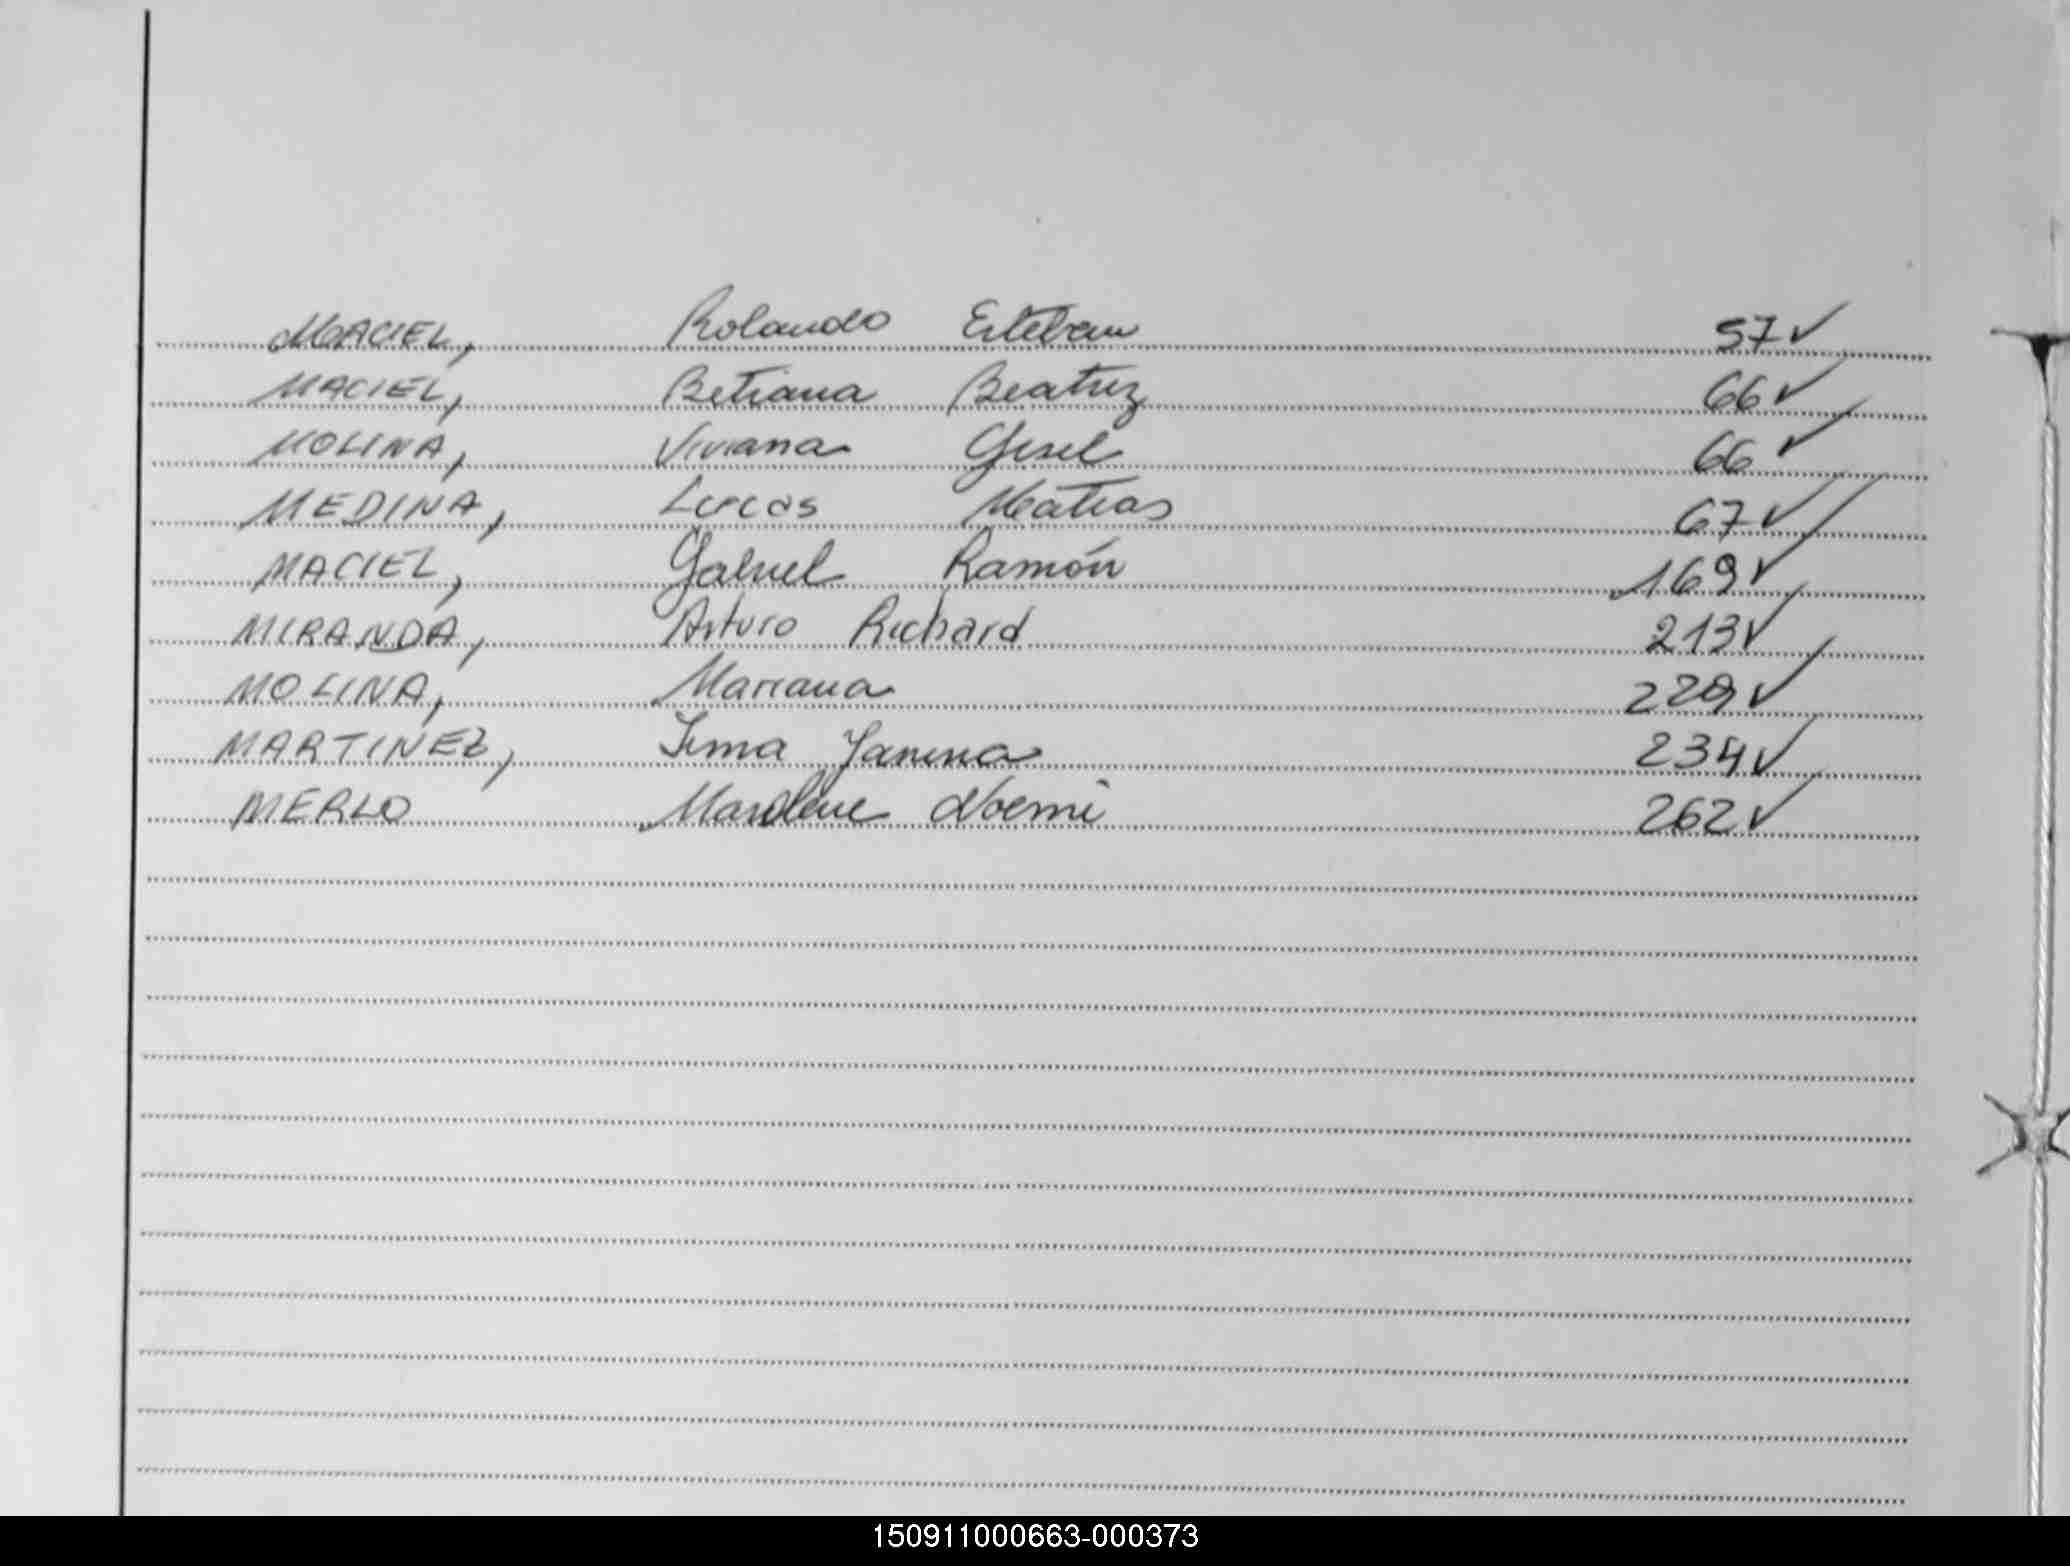 MACIEL, Rolando Esteban 57✓
MACIEL, Betiana Beatriz 66✓
MOLINA, Viviana Gisel 66✓
MEDINA, Lucas Matias 67✓
MACIEL, Gabriel Ramón 169✓
MIRANDA, Arturo Richard 213✓
MOLINA, Mariana 229✓
MARTINEZ, Irma Yanina 234✓
MERLO Marlene Noemi 262✓
150911000663-000373